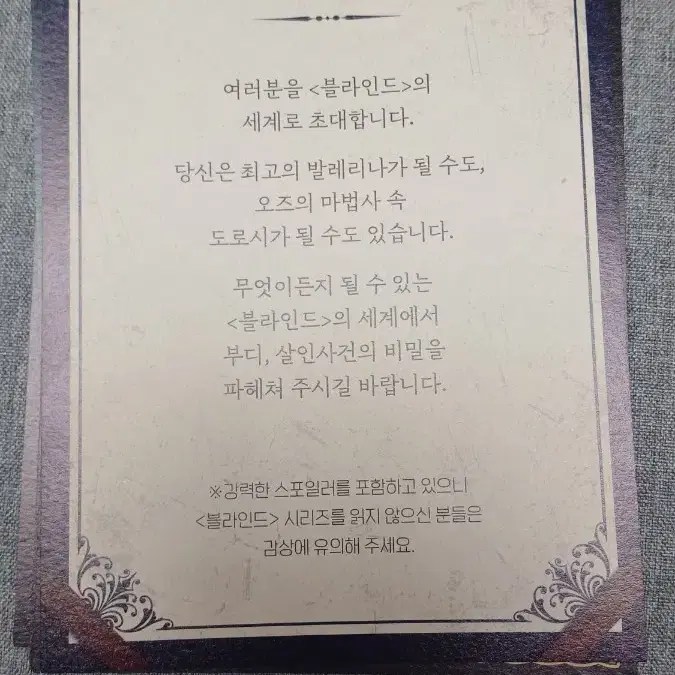 여러분을 <블라인드>의
세계로 초대합니다.
당신은 최고의 발레리나가 될 수도,
오즈의 마법사 속
도로시가 될 수도 있습니다.
무엇이든지 될 수 있는
<블라인드>의 세계에서
부디, 살인사건의 비밀을
파헤쳐 주시길 바랍니다.
※강력한 스포일러를 포함하고 있으니
<블라인드> 시리즈를 읽지 않으신 분들은
감상에 유의해 주세요.